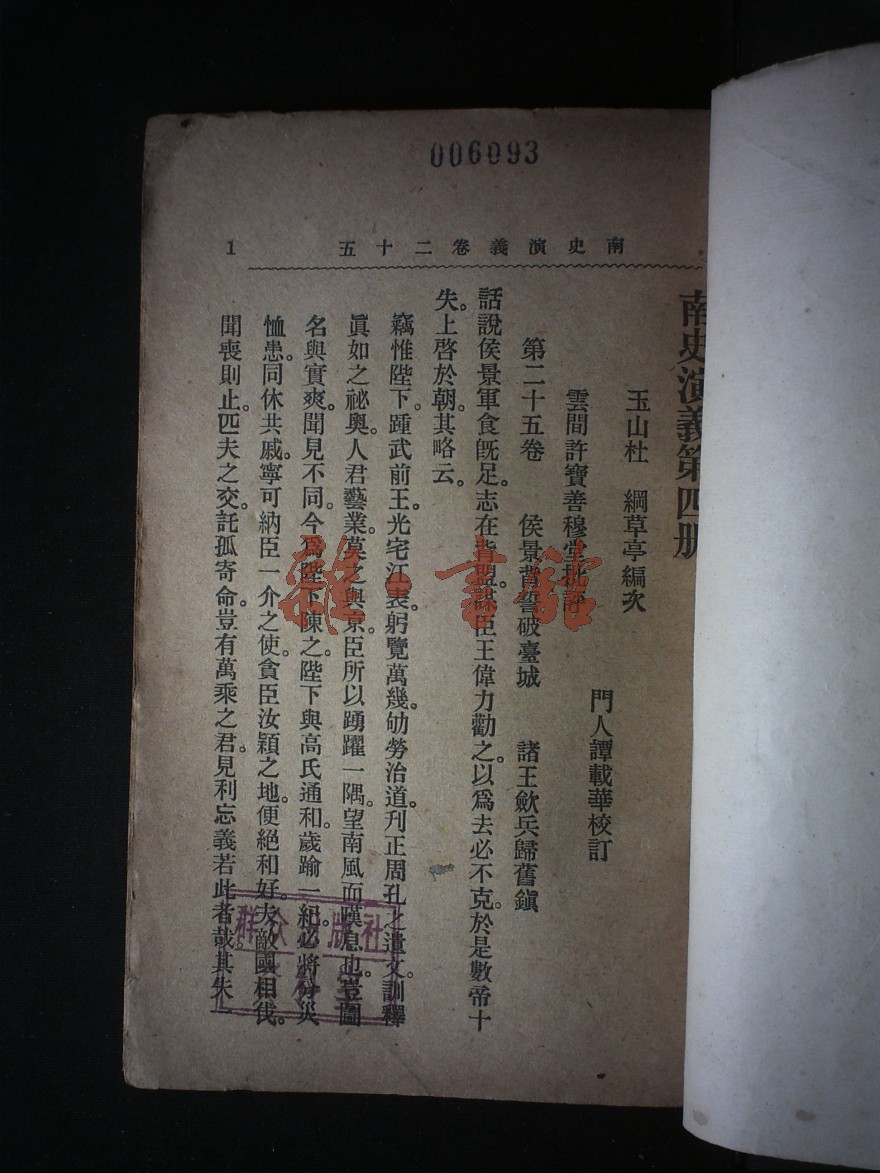 006093
南史演義卷二十五
1
南史演義第四册
玉山杜　綱草亭編次
雲間許寶善穆堂批評
門人譚載華校訂
第二十五卷　侯景背誓破臺城　諸王歛兵歸舊鎭
話說侯景軍食旣足。志在背盟。謀臣王偉力勸之。以爲去必不克。於是數帝十
失。上啓於朝。其略云。
竊惟陛下。踵武前王。光宅江表。躬覽萬幾。劬勞治道。刊正周孔之遺文。訓釋
眞如之祕奧。人君藝業。莫之與京。臣所以踴躍一隅。望南風而嘆息也。豈圖
名與實爽。聞見不同。今爲陛下陳之。陛下與高氏通和。歲踰一紀。必將分災
恤患。同休共戚。寧可納臣一介之使。貪臣汝潁之地。便絕和好。夫敵國相伐。
聞喪則止。匹夫之交。託孤寄命。豈有萬乘之君。見利忘義若此者哉。其失一
雜·書館
群众出版社